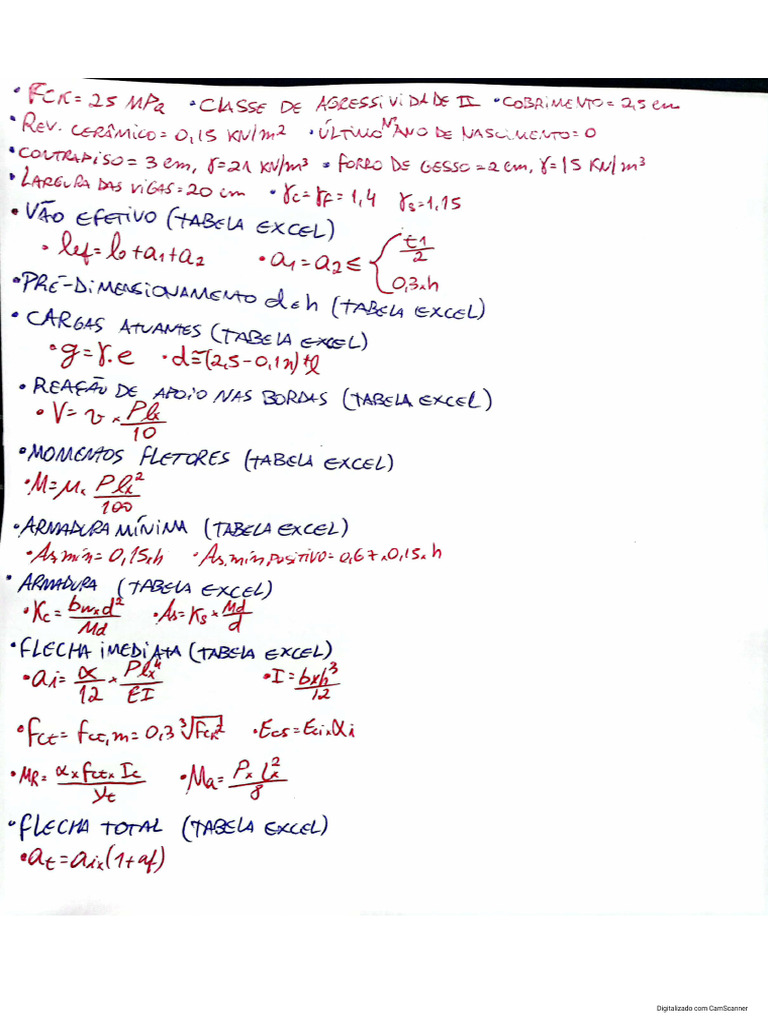 • FCK = 25 MPa • CLASSE DE AGRESSIVIDADE II • COBRIMENTO = 2,5 cm
• REV. CERÂMICO = 0,15 KN/m² • ÚLTIMO Nº ANO DE NASCIMENTO = 0
• CONTRAPISO = 3 cm, γ = 21 KN/m³ • FORRO DE GESSO = 2 cm, γ = 15 KN/m³
• LARGURA DAS VIGAS = 20 cm • γc = γF = 1,4 γs = 1,15
• VÃO EFETIVO (TABELA EXCEL)
• lef = l0 + a1 + a2 • a1 = a2 ≤ { t1/2
0,3 x h
• PRÉ-DIMENSIONAMENTO d e h (TABELA EXCEL)
• CARGAS ATUANTES (TABELA EXCEL)
• g = γ . e • d ≅ (2,5 - 0,1n) * l
• REAÇÃO DE APOIO NAS BORDAS (TABELA EXCEL)
• V = v x Plx/10
• MOMENTOS FLETORES (TABELA EXCEL)
• M = μ x Plx²/100
• ARMADURA MÍNIMA (TABELA EXCEL)
• As,mín = 0,15 x h • As,mín,POSITIVO = 0,67 x 0,15 x h
• ARMADURA (TABELA EXCEL)
• Kc = bw x d²/Md • As = Ks x Md/d
• FLECHA IMEDIATA (TABELA EXCEL)
• ai = α/12 x Plx⁴/EI • I = b x h³/12
• Fct = fct,m = 0,3 ∛FcK² • Ecs = Eci x αi
• MR = α x fct x Ic/yt • Ma = P x lx²/8
• FLECHA TOTAL (TABELA EXCEL)
• at = ai x (1 + αf)
Digitalizado com CamScanner